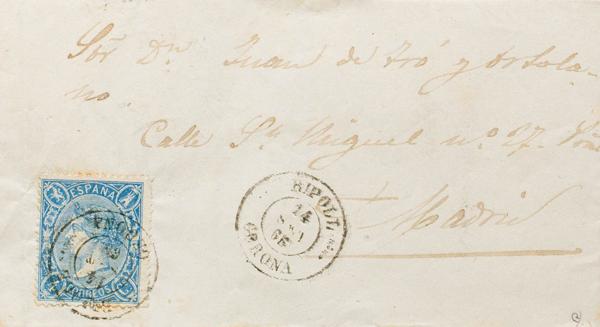 Sor Dn Juan de Iró y Ortola-
no.
Calle Sn Miguel no 27.
Madrid
ESPAÑA
CORREOS
RIPOLL
14
66
GERONA
GERONA